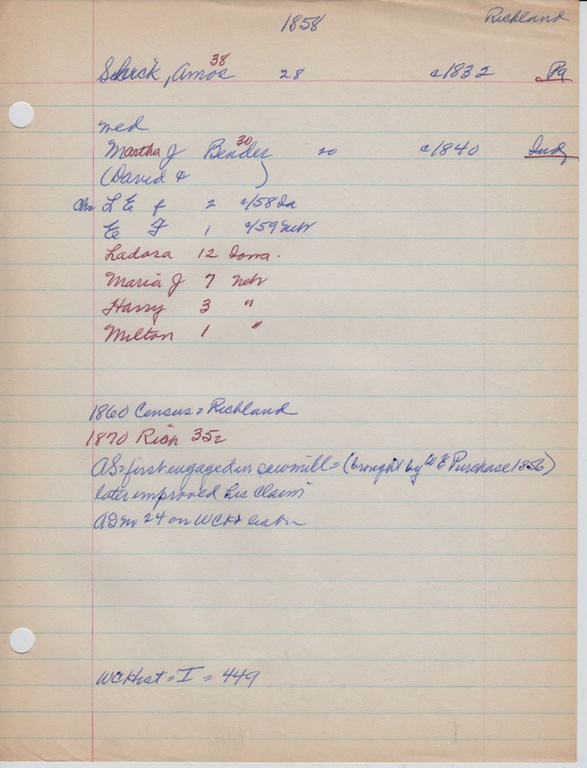 1858
Richland
Shick, Amos 38 28 c1832 Pa
med
Martha J Bender 30 20 c1840 Ind
(David & )
Chn L E f 2 c/58 Ia
E F 1 c/59 Nebr
Ladora 12 Iowa.
Maria J 7 Nebr
Harry 3 "
Milton 1 "
1860 Census = Richland
1870 Rich 352
AS = first engaged in sawmill = (brought by W E Purchase 1856)
later improved his claim
AS on 24 on WCH
WCHist = I = 449